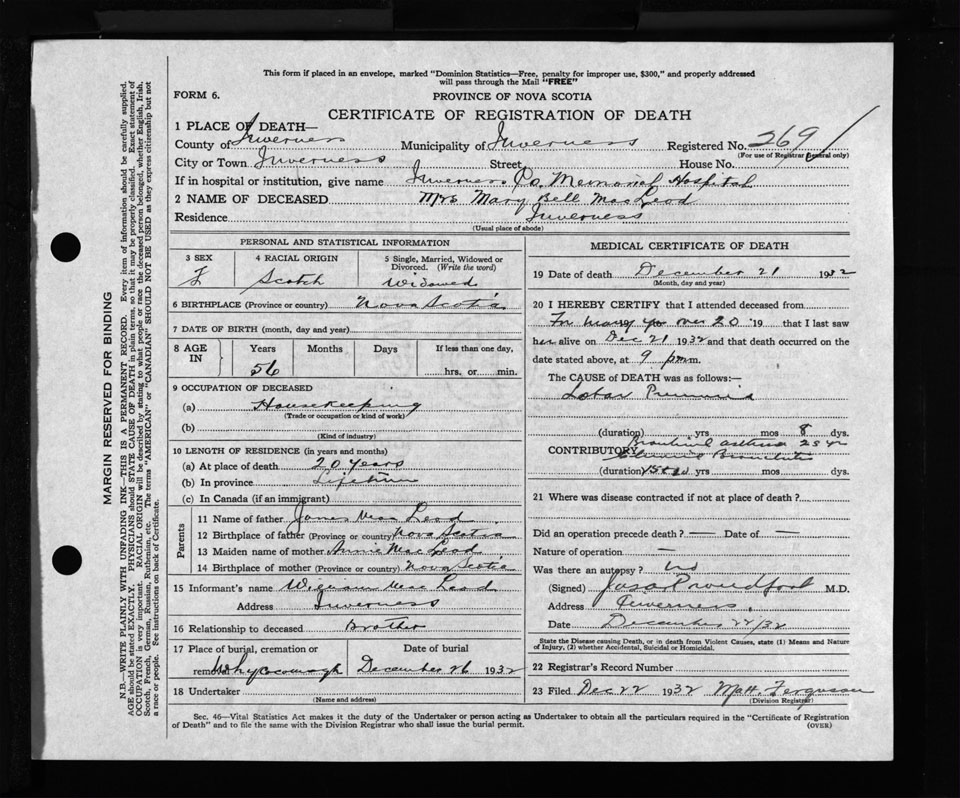 This form if placed in an envelope, marked "Dominion Statistics—Free, penalty for improper use, $300," and properly addressed
will pass through the Mail "FREE"
FORM 6.
PROVINCE OF NOVA SCOTIA
CERTIFICATE OF REGISTRATION OF DEATH
1 PLACE OF DEATH—
County of Inverness Municipality of Inverness Registered No. 269
(For use of Registrar General only)
City or Town Inverness Street House No.
If in hospital or institution, give name Inverness Co. Memorial Hospital
2 NAME OF DECEASED Mrs Mary Bell MacLeod
Residence Inverness
(Usual place of abode)
PERSONAL AND STATISTICAL INFORMATION
3 SEX
F
4 RACIAL ORIGIN
Scotch
5 Single, Married, Widowed or
Divorced. (Write the word)
Widowed
6 BIRTHPLACE (Province or country) Nova Scotia
7 DATE OF BIRTH (month, day and year)
8 AGE IN
Years Months Days If less than one day,
56 hrs. or min.
9 OCCUPATION OF DECEASED
(a) Housekeeping
(Trade or occupation or kind of work)
(b)
(Kind of industry)
10 LENGTH OF RESIDENCE (in years and months)
(a) At place of death 20 years
(b) In province Lifetime
(c) In Canada (if an immigrant)
Parents
11 Name of father James MacLeod
12 Birthplace of father (Province or country) Nova Scotia
13 Maiden name of mother Annie MacLeod
14 Birthplace of mother (Province or country) Nova Scotia
15 Informant's name William MacLeod
Address Inverness
16 Relationship to deceased Brother
17 Place of burial, cremation or Date of burial
removal Whycocomagh December 26 1932
18 Undertaker
(Name and address)
MEDICAL CERTIFICATE OF DEATH
19 Date of death December 21 1932
(Month, day and year)
20 I HEREBY CERTIFY that I attended deceased from
For many yrs over 20 19 that I last saw
her alive on Dec 21 1932 and that death occurred on the
date stated above, at 9 pm m.
The CAUSE of DEATH was as follows:—
Lobar Pneumonia
(duration) yrs mos 8 dys.
Bronchial asthma 25 yr
CONTRIBUTORY Chronic Bronchitis
(duration) yrs mos dys.
21 Where was disease contracted if not at place of death?
Did an operation precede death? — Date of —
Nature of operation —
Was there an autopsy? no
(Signed) Jas. A. Proudfoot M.D.
Address Inverness.
Date December 22/32
State the Disease causing Death, or in death from Violent Causes, state (1) Means and Nature
of Injury, (2) whether Accidental, Suicidal or Homicidal.
22 Registrar's Record Number
23 Filed Dec 22 1932 Matt. Ferguson
(Division Registrar)
Sec. 46—Vital Statistics Act makes it the duty of the Undertaker or person acting as Undertaker to obtain all the particulars required in the "Certificate of Registration
of Death" and to file the same with the Division Registrar who shall issue the burial permit. (OVER)
MARGIN RESERVED FOR BINDING
N.B.—WRITE PLAINLY WITH UNFADING INK—THIS IS A PERMANENT RECORD. Every item of information should be carefully supplied.
AGE should be stated EXACTLY. PHYSICIANS should STATE CAUSE OF DEATH in plain terms, so that it may be properly classified. Exact statement of
OCCUPATION is very important. RACIAL ORIGIN will be described by stating to what people or race the deceased person belonged, whether English, Irish,
Scotch, French, German, Russian, Ruthenian, etc. The terms "AMERICAN" or "CANADIAN" SHOULD NOT BE USED as they express citizenship but not
a race or people. See instructions on back of Certificate.